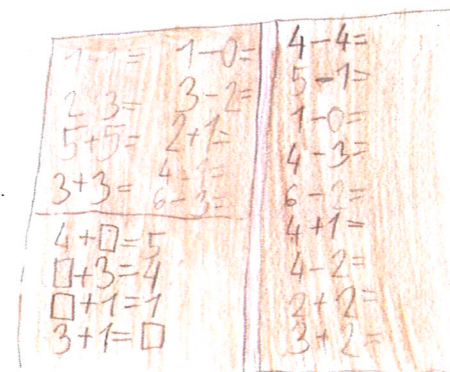 1-1= 1-0=
2 3= 3-2=
5+5= 2+1=
3+3= 4-1=
6-3=
4+□=5
□+3=4
□+1=1
3+1=□
4-4=
5-1=
1-0=
4-3=
6-2=
4+1=
4-2=
2+2=
3+2=